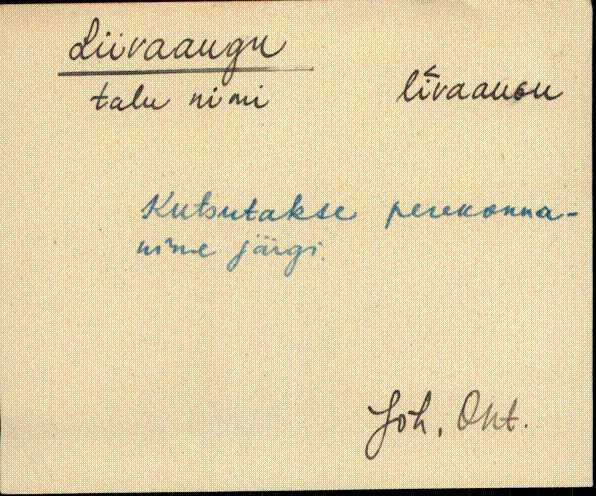 Liivaaugu
talu nimi līvaauGu
Kutsutakse perekonna-
nime järgi.
Joh. Ont.